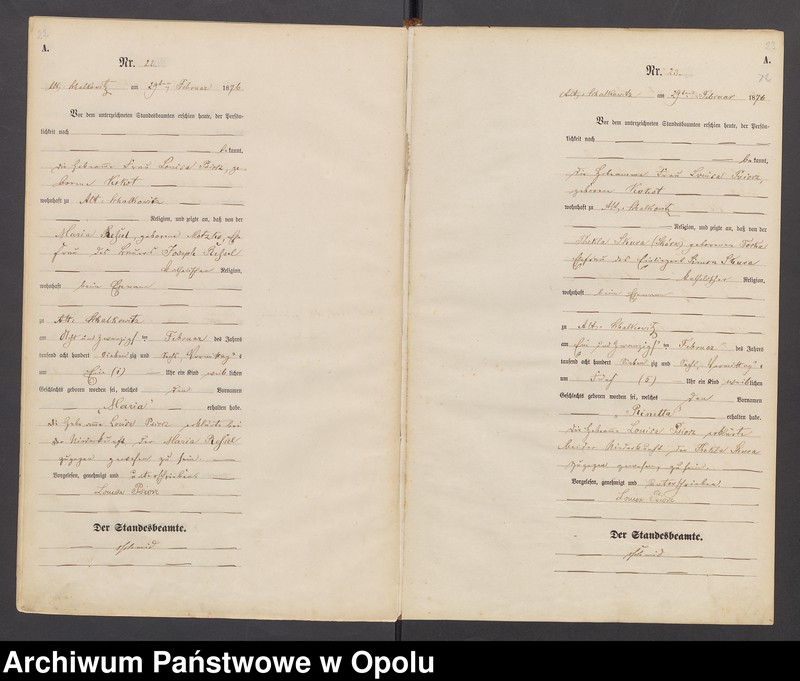 A.
Nr. 22.
Alt-Schalkowitz am 29ten Februar 1876
Vor dem unterzeichneten Standesbeamten erschien heute, der Persön-
lichkeit nach
bekannt,
die Hebamme Frau Louise Piork, ge-
borene Kokot
wohnhaft zu Alt-Schalkowitz
Religion, und zeigte an, daß von der
Maria geborene Ehe-
frau des Bauers Joseph
katholischer Religion,
wohnhaft beim Ehemann
zu Alt-Schalkowitz
am Februar des Jahres
tausend acht hundert sieben zig und sechs, Vormittags
um Ein (1) Uhr ein Kind weiblichen
Geschlechts geboren worden sei, welches den Vornamen
"Maria" erhalten habe.
Die Hebamme Louise Piork erklärte bei
der Niederkunft der Maria
zugegen gewesen zu sein.
Vorgelesen, genehmigt und unterschrieben
Louise Piork
Der Standesbeamte.
Schmid
A.
Nr. 23.
Alt-Schalkowitz am 29ten Februar 1876
Vor dem unterzeichneten Standesbeamten erschien heute, der Persön-
lichkeit nach
bekannt,
die Hebamme Frau Louise Piork,
geborene Kokot
wohnhaft zu Alt-Schalkowitz
Religion, und zeigte an, daß von der
Thekla geborenen
Ehefrau des Einliegers Simon
katholischer Religion,
wohnhaft beim Ehemann
zu Alt-Schalkowitz
am Ein und zwanzigsten Februar des Jahres
tausend acht hundert sieben zig und sechs, Vormittags
um Fünf (5) Uhr ein Kind weiblichen
Geschlechts geboren worden sei, welches den Vornamen
erhalten habe.
Die Hebamme Louise Piork erklärte
bei der Niederkunft der Thekla
zugegen gewesen zu sein.
Vorgelesen, genehmigt und unterschrieben
Louise Piork
Der Standesbeamte.
Schmid
Archiwum Państwowe w Opolu